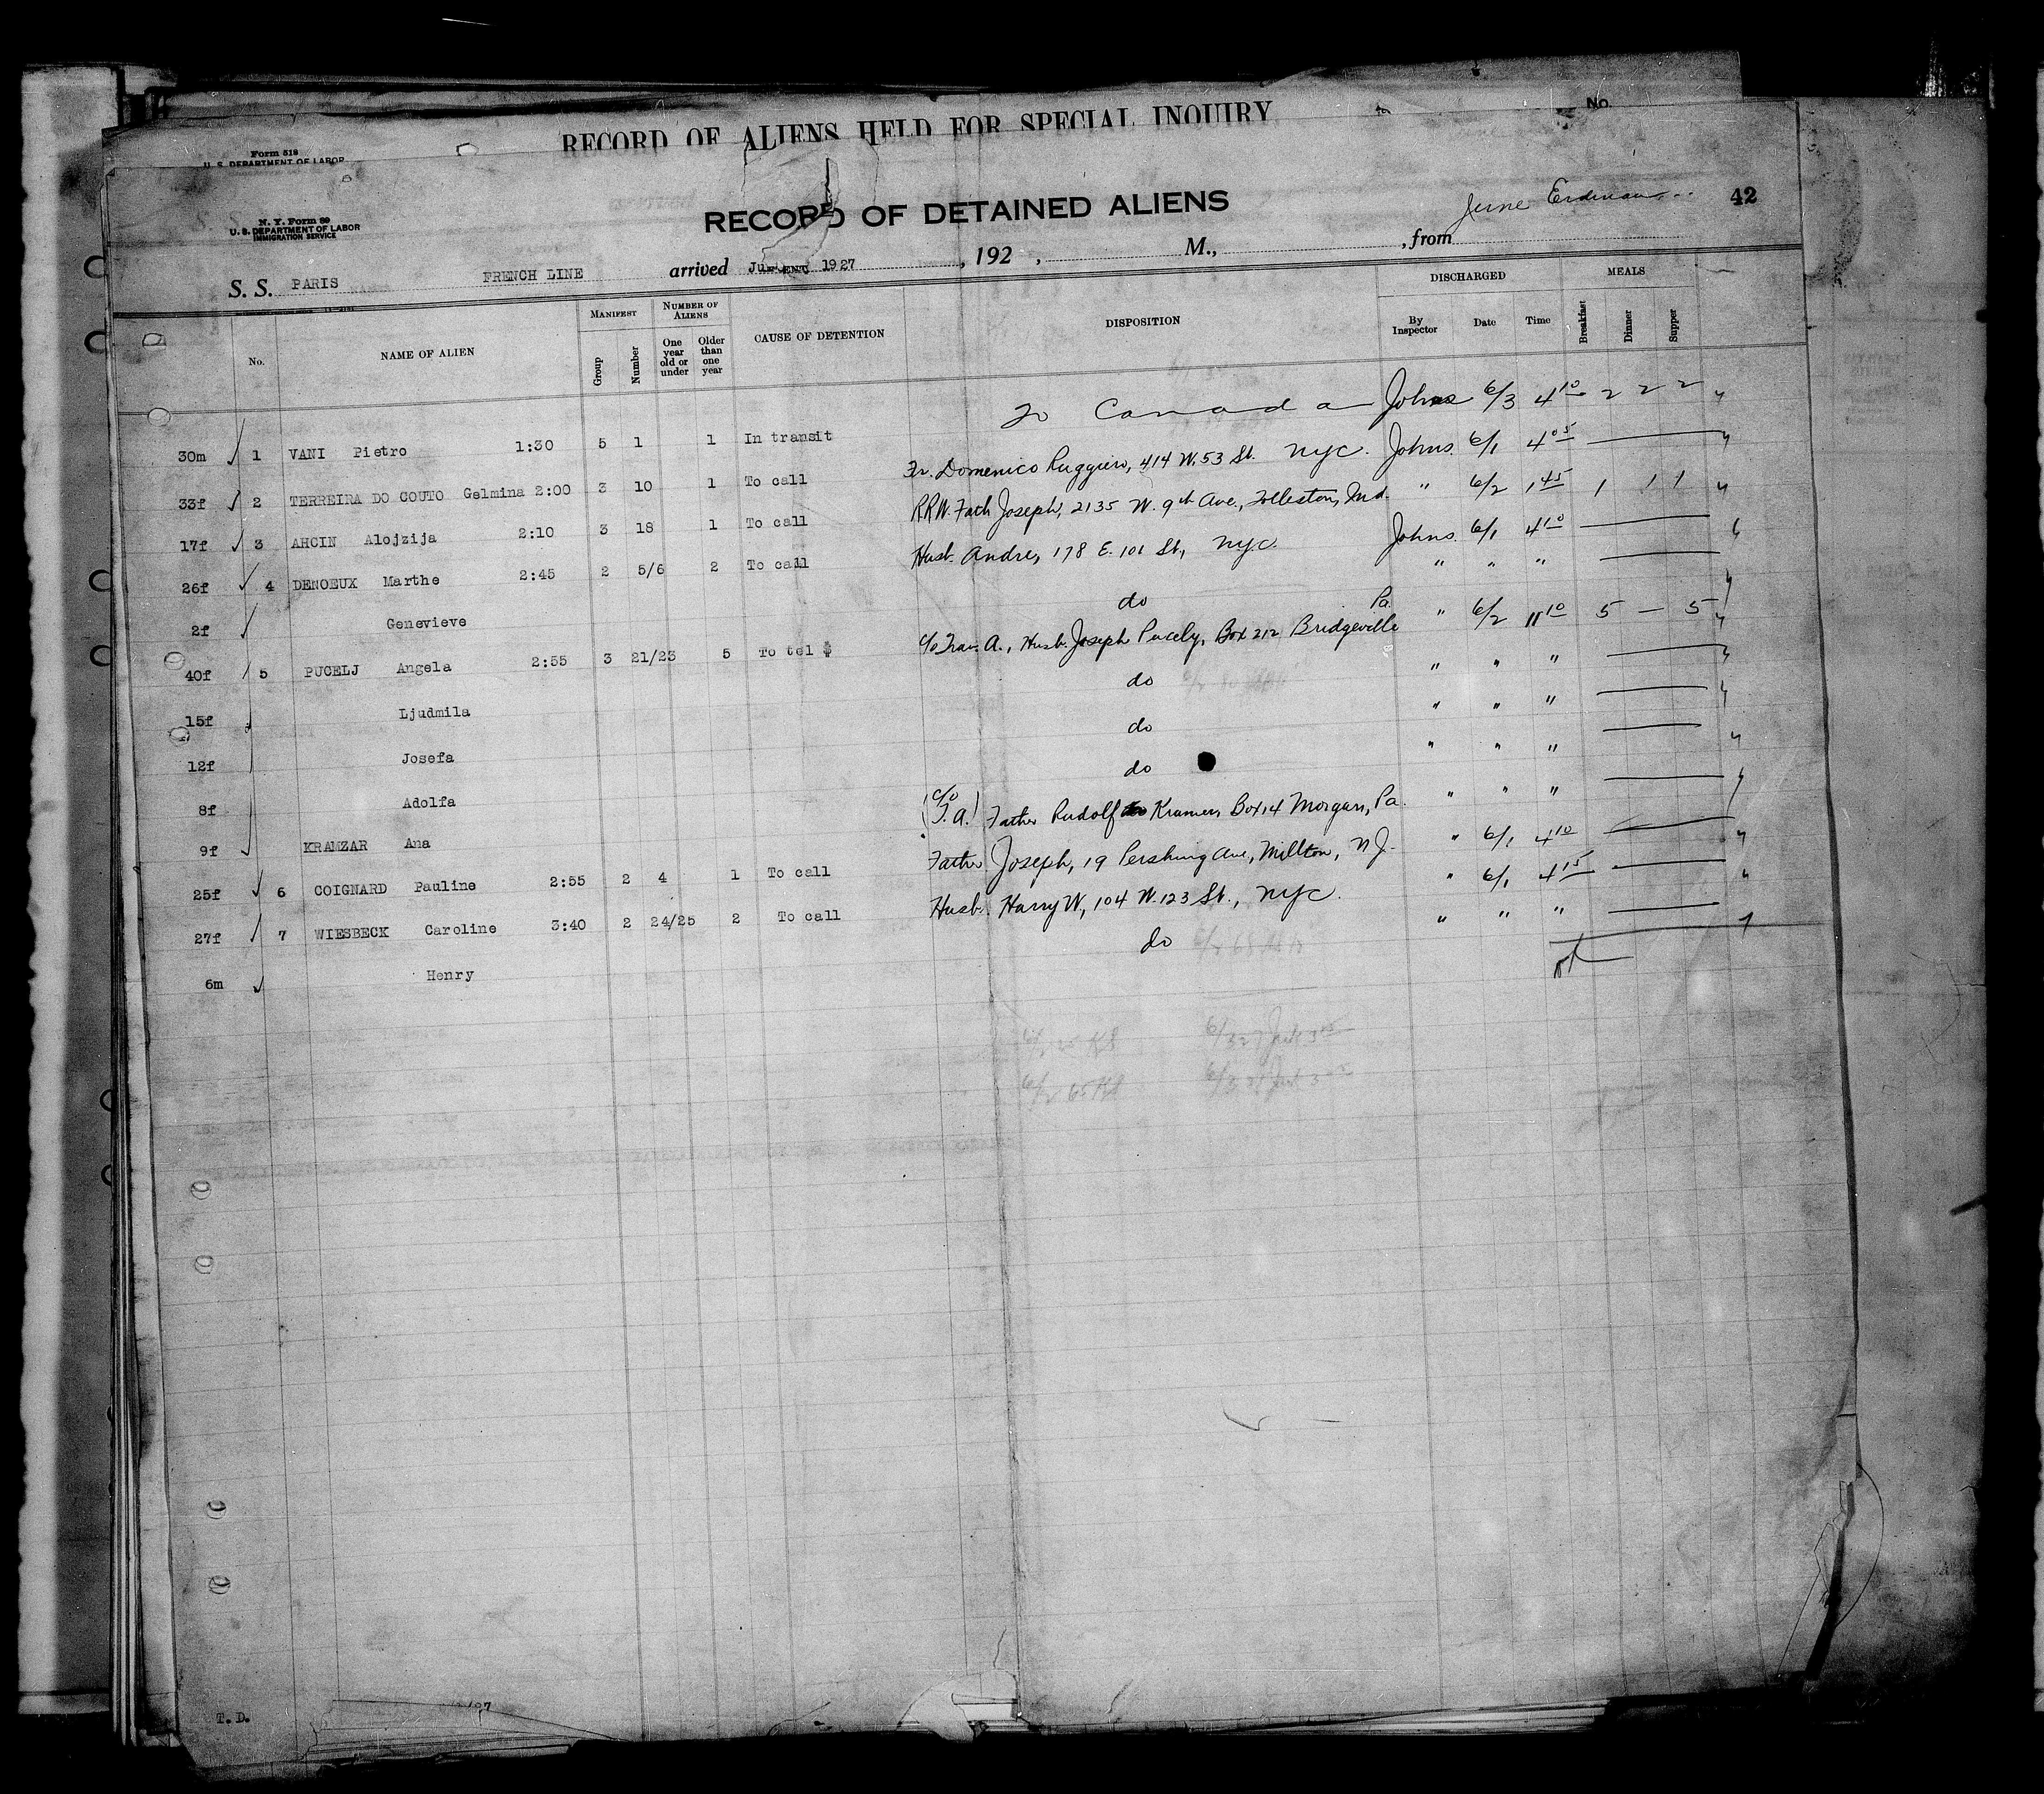 RECORD OF ALIENS HELD FOR SPECIAL INQUIRY No.
Form 518
U. S. DEPARTMENT OF LABOR
N. Y. Form 89
U. S. DEPARTMENT OF LABOR
IMMIGRATION SERVICE
RECORD OF DETAINED ALIENS 42
S. S. PARIS FRENCH LINE arrived 1927, 192 , M., from
No. NAME OF ALIEN MANIFEST Group Number NUMBER OF ALIENS One year old or under Older than one year CAUSE OF DETENTION DISPOSITION DISCHARGED By Inspector Date Time MEALS Breakfast Dinner Supper
30m 1 VANI Pietro 1:30 5 1 1 In transit To Canada Johns 6/3 4 10 2 2 2
33f 2 TERREIRA DO COUTO Gelmina 2:00 3 10 1 To call Fr. Domenico Ruggiero, 414 W. 53 St. NYC. Johns. 6/1 4 05
17f 3 AHCIN Alojzija 2:10 3 18 1 To call RRW. Fath Joseph, 2135 W. 9th Ave., Tolleston, Ind. " 6/2 1 45 1 1 1
26f 4 DENOEUX Marthe 2:45 2 5/6 2 To call Husb. Andre, 178 E. 101 St., NYC. Johns. 6/1 4 10
2f Genevieve do " " "
40f 5 PUCELJ Angela 2:55 3 21/23 5 To tel $ c/o Trav. A., Husb. Joseph Pucely, Box 212 Bridgeville Pa. " 6/2 11 10 5 — 5
15f Ljudmila do " " "
12f Josefa do " " "
8f Adolfa do " " "
9f KRAMZAR Ana (c/o T. A.) Father Rudolf Kramer, Box 14 Morgan, Pa. " " "
25f 6 COIGNARD Pauline 2:55 2 4 1 To call Father Joseph, 19 Pershing Ave., Millton, N J. " 6/1 4 10
27f 7 WIESBECK Caroline 3:40 2 24/25 2 To call Husb. Harry W, 104 W. 123 St., NYC. " 6/1 4 15
6m Henry do " " "
T. D.